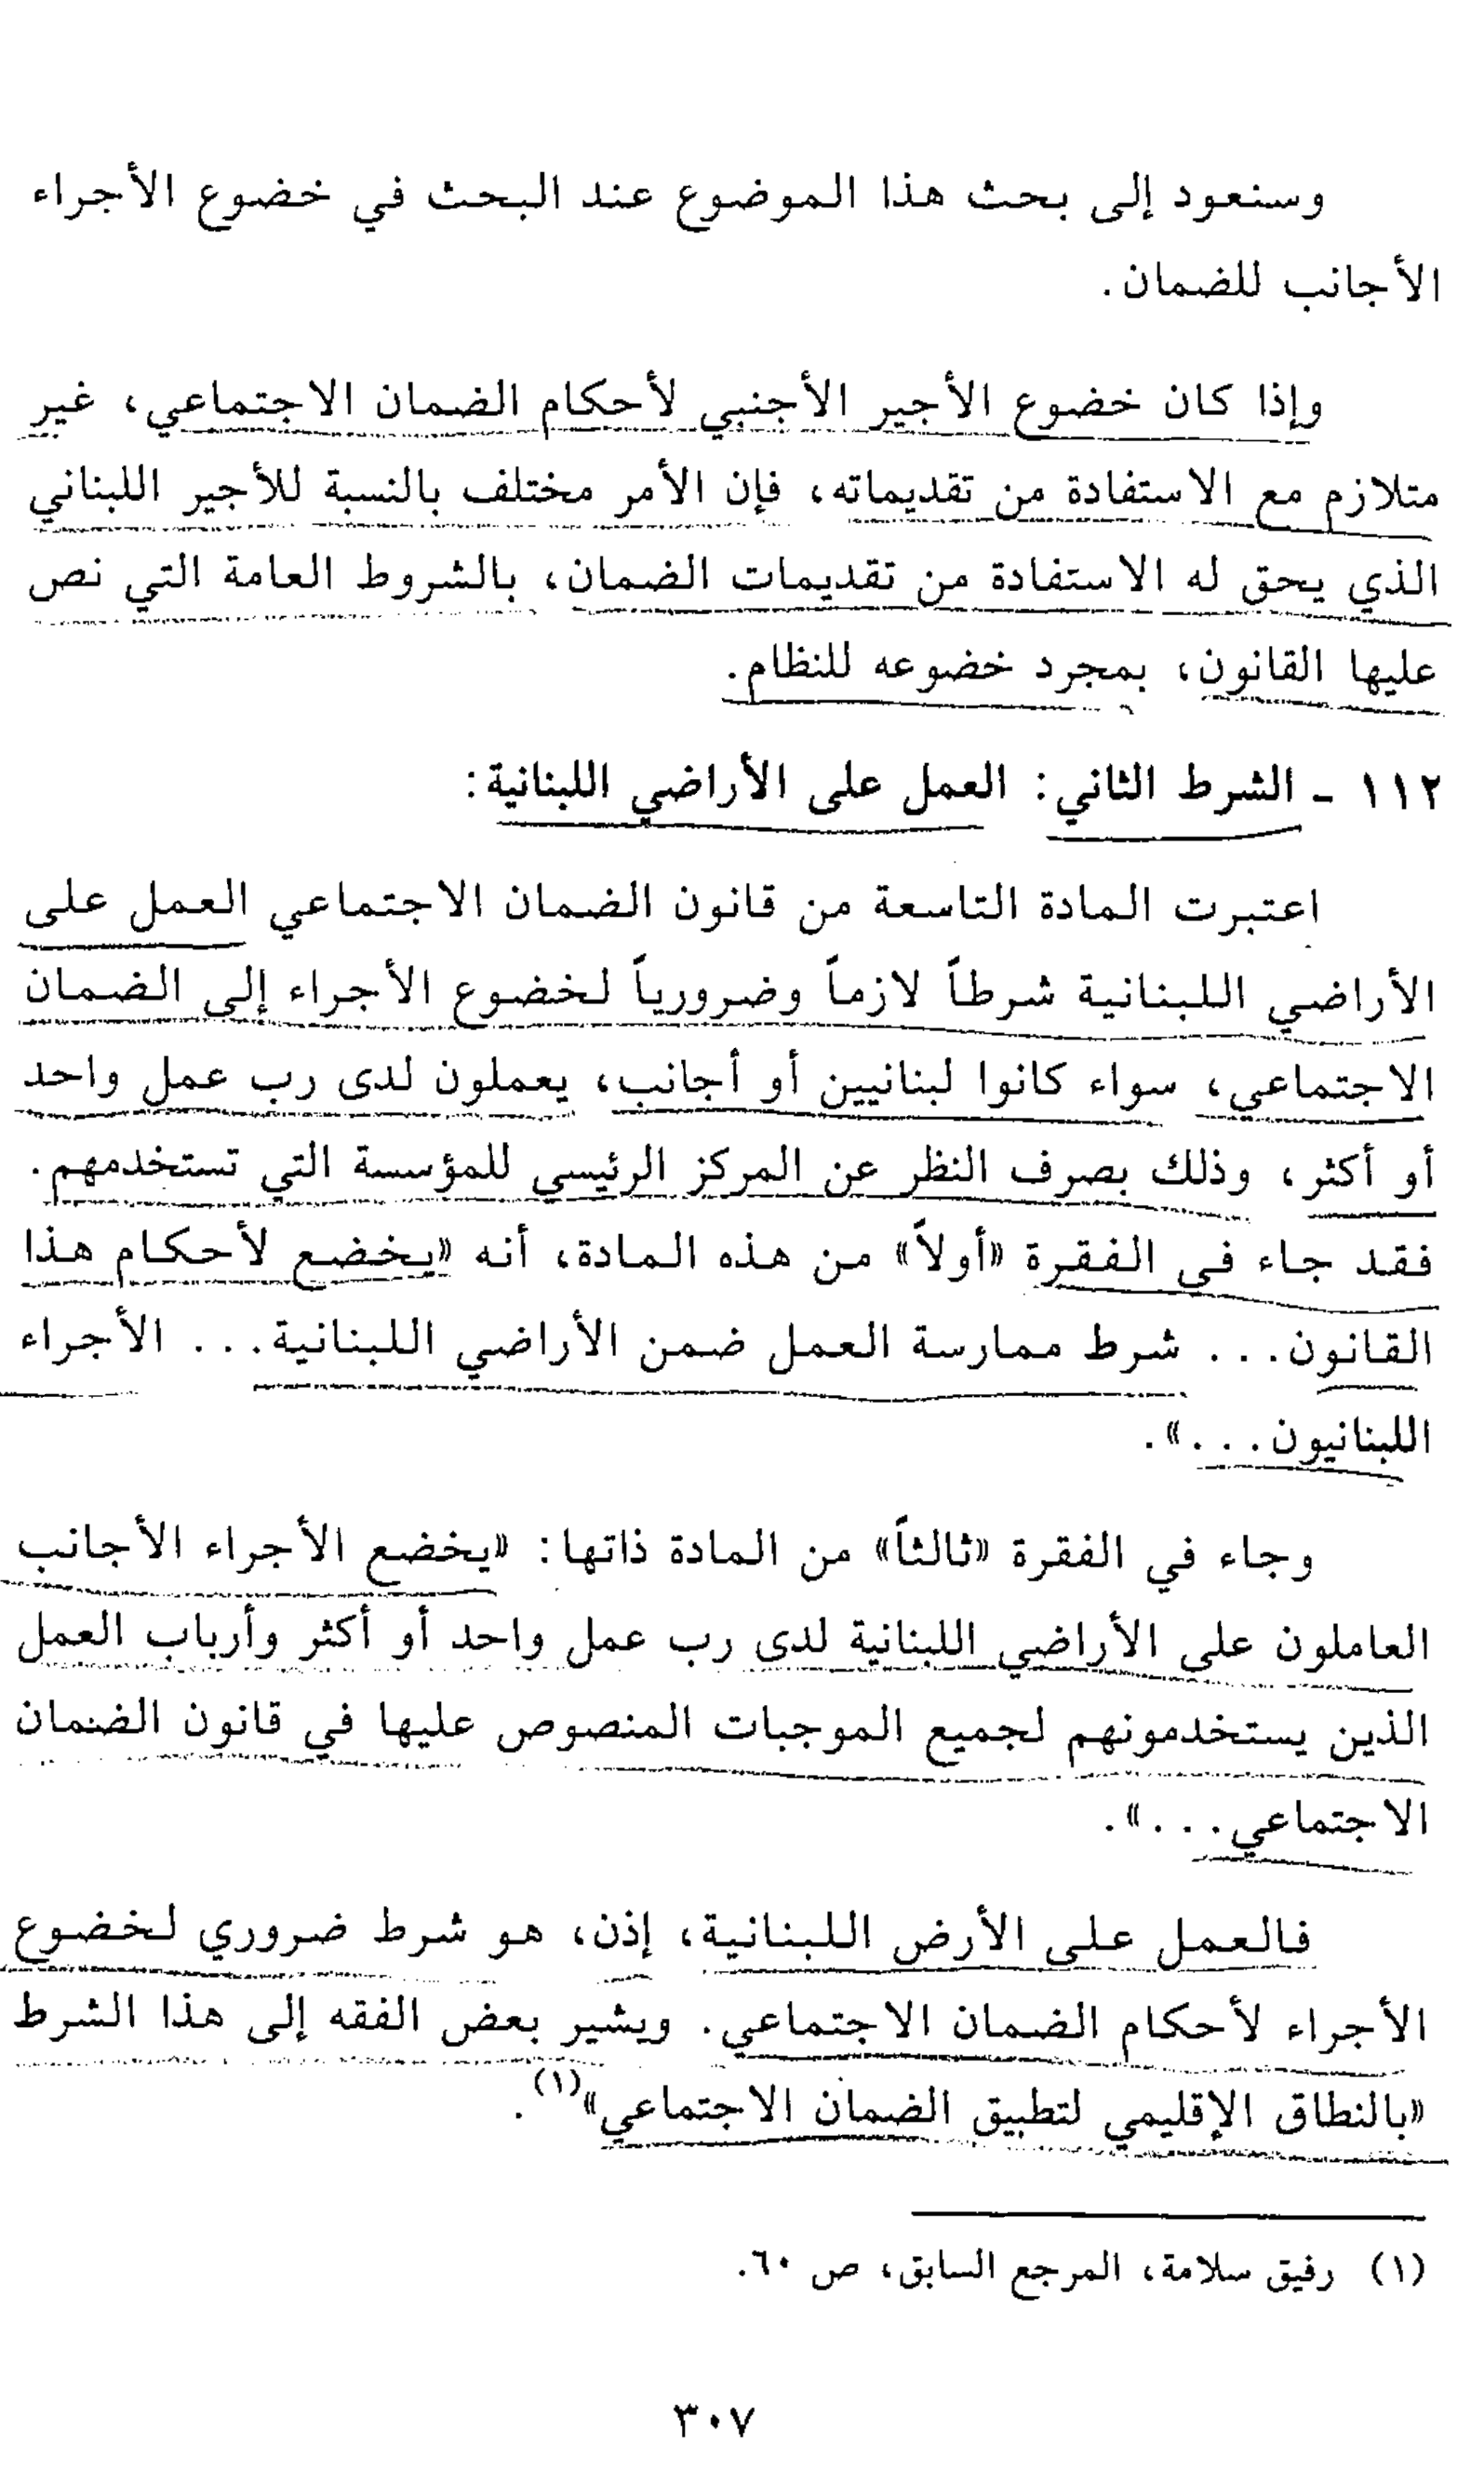 وسنعود إلى بحث هذا الموضوع عند البحث في خضوع الأجراء
الأجانب للضمان.
وإذا كان خضوع الأجير الأجنبي لأحكام الضمان الاجتماعي، غير
متلازم مع الاستفادة من تقديماته، فإن الأمر مختلف بالنسبة للأجير اللبناني
الذي يحق له الاستفادة من تقديمات الضمان، بالشروط العامة التي نص
عليها القانون، بمجرد خضوعه للنظام.
١١٢ - الشرط الثاني: العمل على الأراضي اللبنانية:
اعتبرت المادة التاسعة من قانون الضمان الاجتماعي العمل على
الأراضي اللبنانية شرطاً لازماً وضرورياً لخضوع الأجراء إلى الضمان
الاجتماعي، سواء كانوا لبنانيين أو أجانب، يعملون لدى رب عمل واحد
أو أكثر، وذلك بصرف النظر عن المركز الرئيسي للمؤسسة التي تستخدمهم.
فقد جاء في الفقرة «أولاً» من هذه المادة، أنه «يخضع لأحكام هذا
القانون... شرط ممارسة العمل ضمن الأراضي اللبنانية... الأجراء
اللبنانيون...».
وجاء في الفقرة «ثالثاً» من المادة ذاتها: «يخضع الأجراء الأجانب
العاملون على الأراضي اللبنانية لدى رب عمل واحد أو أكثر وأرباب العمل
الذين يستخدمونهم لجميع الموجبات المنصوص عليها في قانون الضمان
الاجتماعي...».
فالعمل على الأرض اللبنانية، إذن، هو شرط ضروري لخضوع
الأجراء لأحكام الضمان الاجتماعي. ويشير بعض الفقه إلى هذا الشرط
«بالنطاق الإقليمي لتطبيق الضمان الاجتماعي»(١).
(١) رفيق سلامة، المرجع السابق، ص ٦٠.
٣٠٧